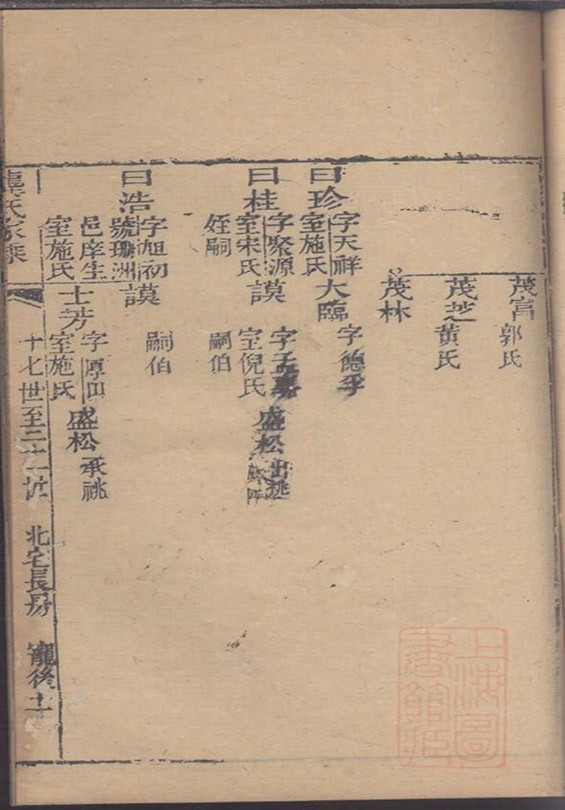 茂富 郭氏
茂芝 黃氏
茂林
曰珍 字天祥 室施氏
大臨 字德孚
曰桂 字聚源 室宋氏 姪嗣
謨 字子 室倪氏 嗣伯
盛松 出祧
曰浩 字旭初 號珊洲 邑庠生 室施氏
謨 嗣伯
士芳 字厚田 室施氏
盛松 承祧
龔氏家乘
十七世至二十一世 北宅長房 寵後 十一
上海圖書館藏